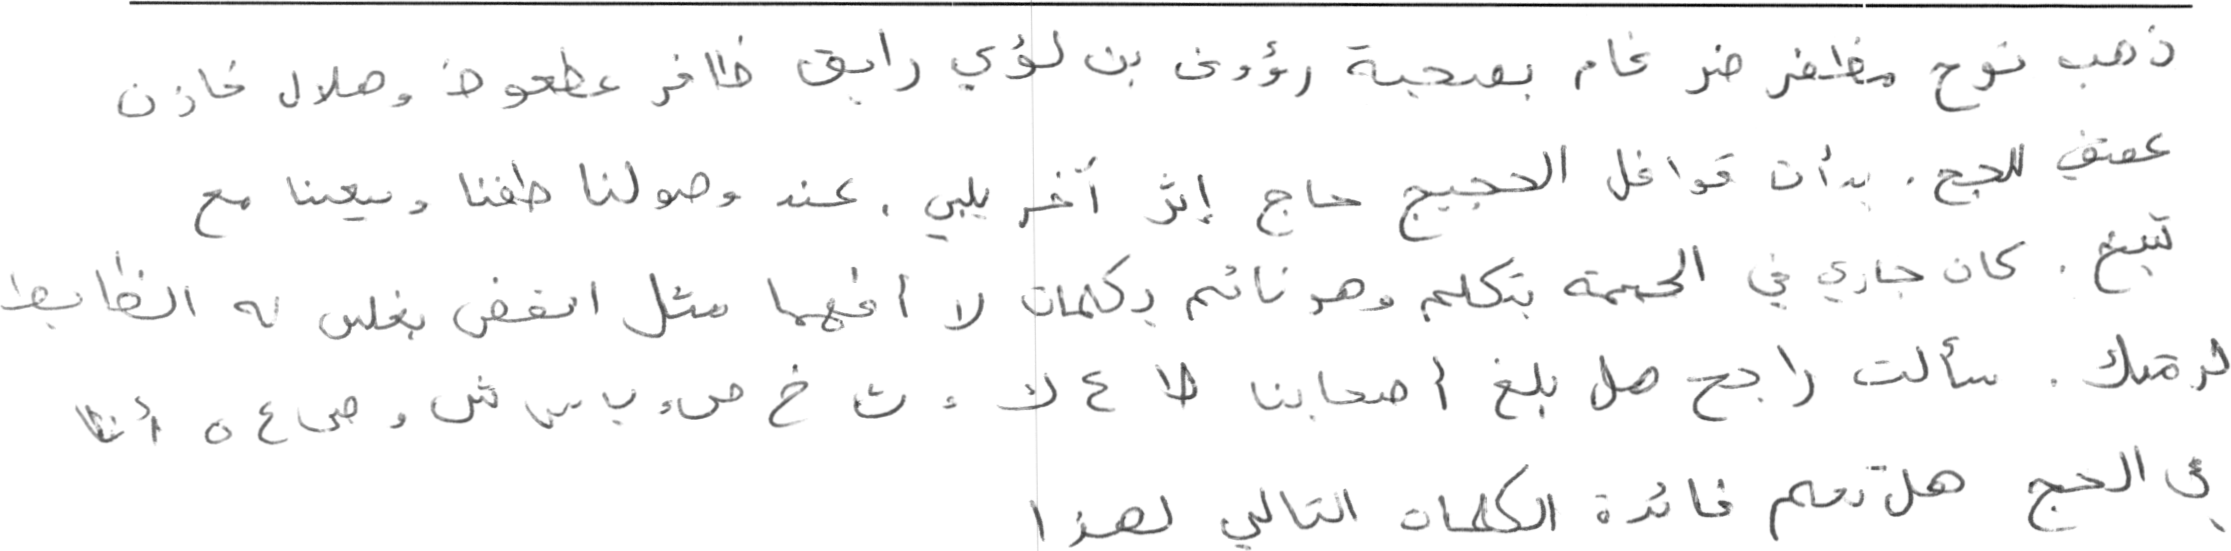 ذهب نوح مظفر ضرغام بصحبة رؤوف بن لؤي رايق ظافر عطعوط وهلال خازن
عفيفي للحج. بدأت قوافل الحجيج حاج إثر آخر يلبي. عند وصولنا طفنا وسعينا مع
تتبغ. كان جاري في الخيمة يتكلم وهو نائم بكلمات لا أفهمها مثل انغض بغلس له الظابط
لرمتك. سألت راجح هل بلغ أصحابنا ط ع ك ء ث خ ص ب س ش و ص ع ه أننا
في الحج هل تعلم فائدة الكلمات التالي لهذا